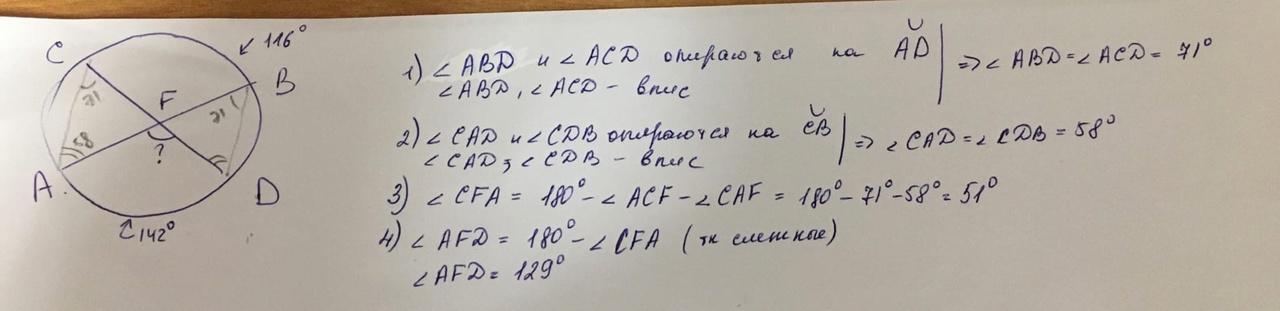 C
116°
B
F
71
71
58
?
A
D
142°
1) ∠ABD и ∠ACD опираются на ᴗAD
∠ABD, ∠ACD – впис
=> ∠ABD = ∠ACD = 71°
2) ∠CAD и ∠CDB опираются на ᴗCB
∠CAD, ∠CDB – впис
=> ∠CAD = ∠CDB = 58°
3) ∠CFA = 180° – ∠ACF – ∠CAF = 180° – 71° – 58° = 51°
4) ∠AFD = 180° – ∠CFA (тк смежные)
∠AFD = 129°